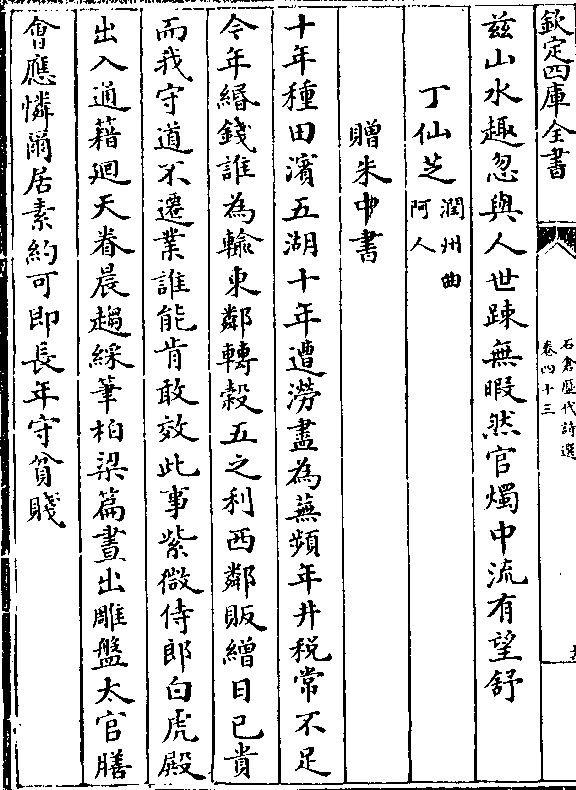 欽定四庫全書
石倉歷代詩選
卷四十三
茲山水趣忽與人世踈無暇然官燭中流有望舒
丁仙芝潤州曲
阿人
贈朱中書
十年種田濱五湖十年遭澇盡為蕪頻年井税常不足
今年緡錢誰為輸東鄰轉穀五之利西鄰販繒日已貴
而我守道不遷業誰能肯敢效此事紫微侍郎白虎殿
出入通籍迴天眷晨趨綵筆柏梁篇晝出雕盤太官膳
會應憐爾居素約可即長年守貧賤